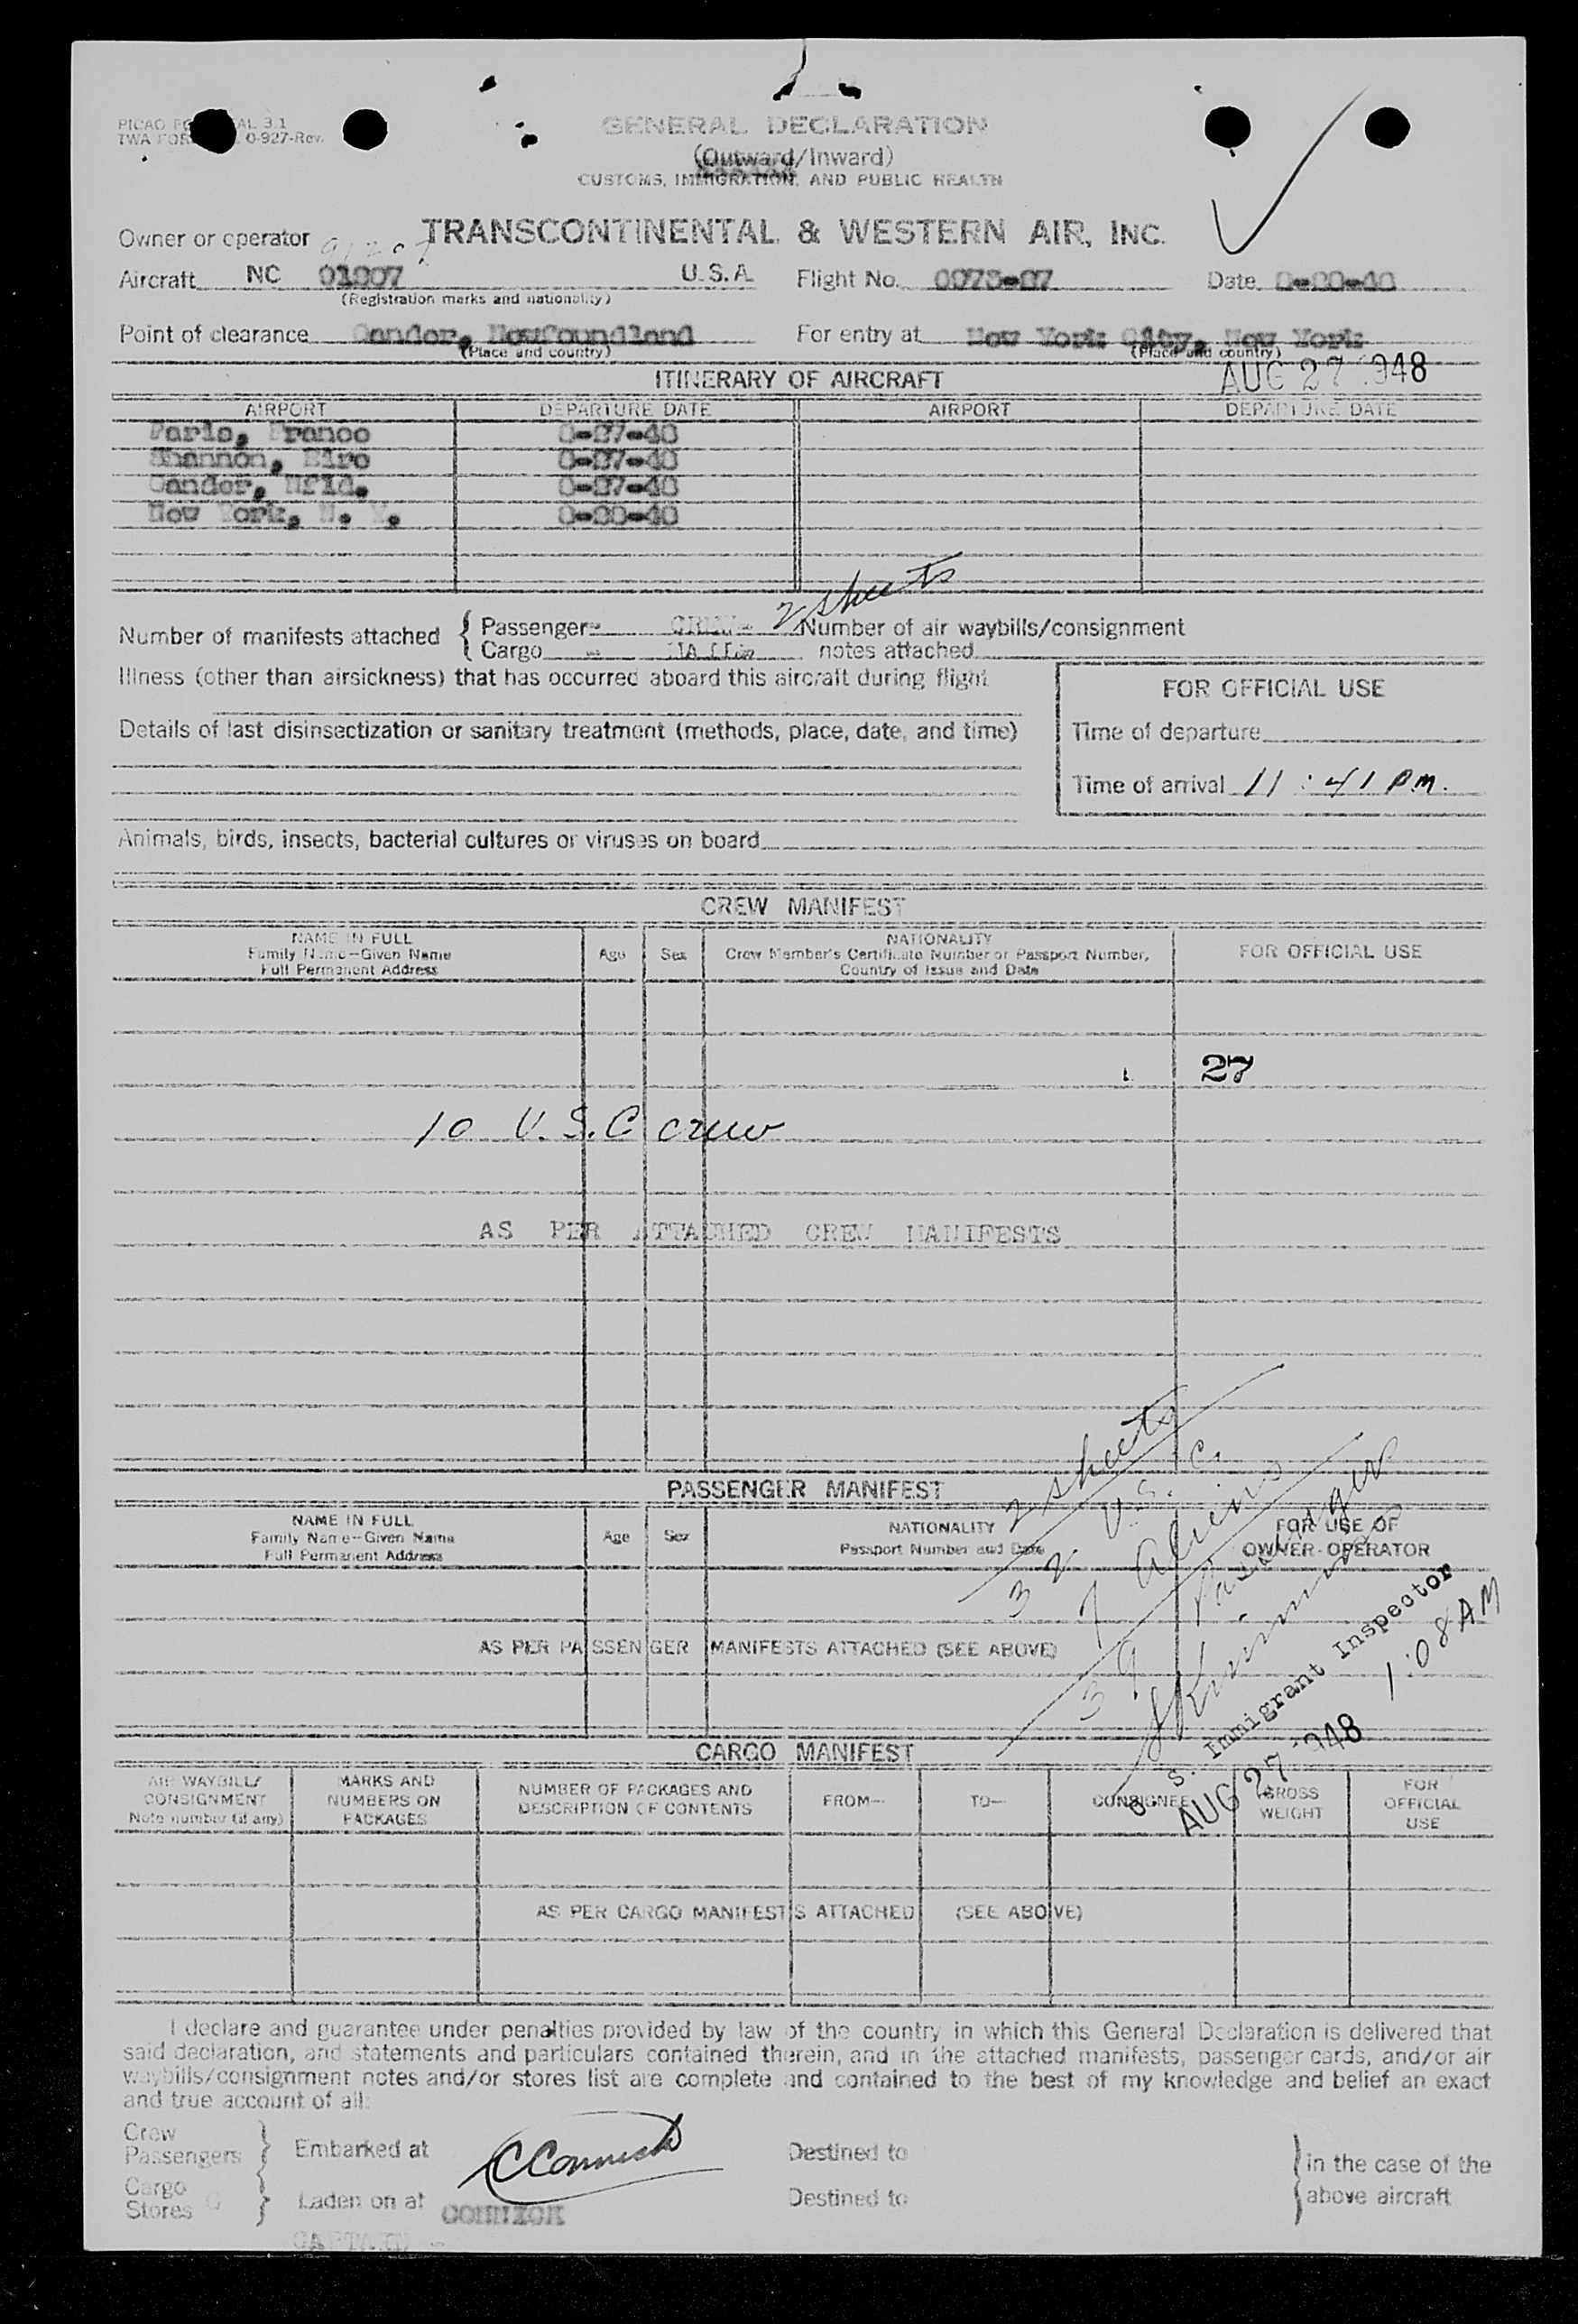 GENERAL DECLARATION
(Outward/Inward)
CUSTOMS, IMMIGRATION, AND PUBLIC HEALTH
0-927-Rev.
Owner or operator TRANSCONTINENTAL & WESTERN AIR, INC.
Aircraft NC U.S.A. Flight No. Date
(Registration marks and nationality)
Point of clearance Gander, Newfoundland For entry at New York City, New York
(Place and country) (Place and country)
AUG 27 1948
ITINERARY OF AIRCRAFT
AIRPORT DEPARTURE DATE AIRPORT DEPARTURE DATE
Paris, France 8-27-48
Shannon, Eire 8-27-48
Gander, Nfld. 8-27-48
New York, N. Y.
2 sheets
Number of manifests attached { Passenger CREW - Number of air waybills/consignment
Cargo - notes attached
Illness (other than airsickness) that has occurred aboard this aircraft during flight
FOR OFFICIAL USE
Details of last disinsectization or sanitary treatment (methods, place, date, and time)
Time of departure
Time of arrival 11:41 P.M.
Animals, birds, insects, bacterial cultures or viruses on board
CREW MANIFEST
NAME IN FULL
Family Name—Given Name
Full Permanent Address
Age Sex
NATIONALITY
Crew Member's Certificate Number or Passport Number,
Country of Issue and Date
FOR OFFICIAL USE
27
10 U.S.C crew
AS PER ATTACHED CREW MANIFESTS
PASSENGER MANIFEST
NAME IN FULL
Family Name—Given Name
Full Permanent Address
Age Sex
NATIONALITY
Passport Number and Date
FOR USE OF
OWNER-OPERATOR
2 sheets
32 U.S.C.
7 Aliens
39 Passenger
U. S. Immigrant Inspector
AUG 27 1948
1:08 AM
AS PER PASSENGER MANIFESTS ATTACHED (SEE ABOVE)
CARGO MANIFEST
AIR WAYBILL/
CONSIGNMENT
Note number (if any)
MARKS AND
NUMBERS ON
PACKAGES
NUMBER OF PACKAGES AND
DESCRIPTION OF CONTENTS
FROM—
TO—
CONSIGNEE
GROSS
WEIGHT
FOR
OFFICIAL
USE
AS PER CARGO MANIFESTS ATTACHED (SEE ABOVE)
I declare and guarantee under penalties provided by law of the country in which this General Declaration is delivered that
said declaration, and statements and particulars contained therein, and in the attached manifests, passenger cards, and/or air
waybills/consignment notes and/or stores list are complete and contained to the best of my knowledge and belief an exact
and true account of all:
Crew
Passengers } Embarked at Destined to
Cargo
Stores } Laden on at Destined to
} in the case of the
above aircraft
CONNICK
CAPTAIN -